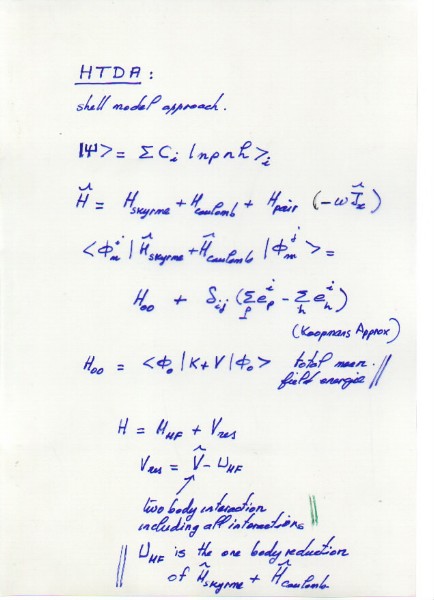 HTDA:
shell model approach.
|Ψ> = Σ Ci |npnh>i
Ĥ = Hskyrme + Hcoulomb + Hpair (-ωĴx)
<Φm^i | Ĥskyrme + Ĥcoulomb | Φm^j> =
Hoo + δij (Σp ep^i - Σh eh^i)
(Koopmans Approx)
Hoo = <Φo | K + V | Φo> total mean
field energie
H = HHF + Vres
Vres = V̂ - UHF
two body interaction
including all interactions
UHF is the one body reduction
of Ĥskyrme + Ĥcoulomb